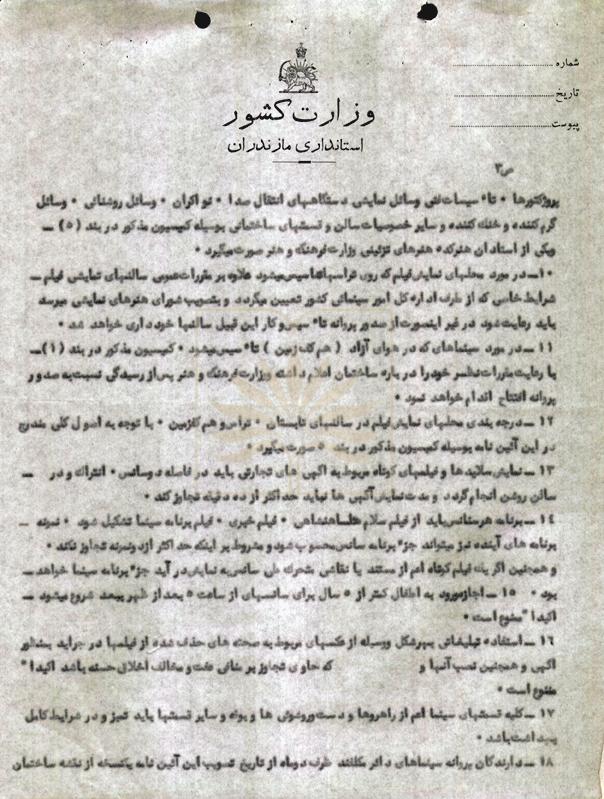 شماره
تاریخ
پیوست
وزارت کشور
استانداری مازندران
ص ۳
پروژکتورها ٠ تاٴسیسات فنی وسائل نمایشی دستگاههای انتقال صدا ٠ نوآکران ٠ وسائل روشنائی ٠ وسائل
گرم کننده و خنک کننده و سایر خصوصیات سالن و قسمتهای ساختمانی بوسیله کمیسیون مذکور در بند (۵) ــ
ویکی از استادان هنرکده هنرهای تزئینی وزارت فرهنگ و هنر صورت میگیرد ٠
۱۰ــ در مورد محلهای نمایش فیلم که روی تراسها تاسیس میشود علاوه بر مقررات عمومی سالنهای نمایش فیلم ــ
شرایط خاصی که از طرف اداره کل امور سینمائی کشور تعیین میگردد و بتصویب شورای هنرهای نمایشی میرسد
باید رعایت شود در غیر اینصورت از صدور پروانه تاٴسیس و کار این قبیل سالنها خودداری خواهد شد ٠
۱۱ ــ در مورد سینماهای که در هوای آزاد ( هم کف زمین ) تاٴسیس میشود ٠ کمیسیون مذکور در بند (۱)ــ
با رعایت مقررات نظر خود را در باره ساختمان اعلام داشته وزارت فرهنگ و هنر پس از رسیدگی نسبت به صدور
پروانه افتتاح اقدام خواهد نمود ٠
۱۲ ــ درجه بندی محلهای نمایش فیلم در سالنهای تابستان ٠ تراس و هم کف زمین ٠ با توجه به اصول کلی مندرج
در این آئین نامه بوسیله کمیسیون مذکور در بند ۵ صورت میگیرد ٠
۱۳ ــ نمایش سلاید ها و فیلمهای کوتاه مربوط به اگهی های تجارتی باید در فاصله دو سانس ٠ انتراک و در ــ
سالن روشن انجام گردد و مدت نمایش آگهی ها نباید حد اکثر از ده دقیقه تجاوز کند ٠
۱۴ ــ برنامه هر سانس باید از فیلم سلام شاهنشاهی ٠ فیلم خبری ٠ فیلم برنامه سینما تشکیل شود ٠ نمونه ــ
برنامه های آینده نیز میتواند جزٴ برنامه سانس محسوب شود و مشروط بر اینکه حد اکثر از دو نمونه تجاوز نکند ٠
و همچنین اگر یک فیلم کوتاه اعم از مستند یا نقاشی متحرک طی سانس به نمایش در آید جزٴ برنامه سینما خواهد ــ
بود ٠ ۱۵ ــ اجازه ورود به اطفال کمتر از ۵ سال برای سانسهای از ساعت ۵ بعد از ظهر ببعد شروع میشود ــ
اکیداً ممنوع است ٠
۱۶ ــ استفاده تبلیغاتی بهر شکل و وسیله از عکسهای مربوط به صحنه های حذف شده از فیلمها در جراید بمنظور
اگهی و همچنین نصب آنها و که حاوی تجاوز بر منافی عفت و مخالف اخلاق حسنه باشد اکیداً
ممنوع است ٠
۱۷ ــ کلیه قسمتهای سینما اعم از راهروها و دست و روشوئی ها و بوفه و سایر قسمتها باید تمیز و در شرایط کامل
بهداشت باشد ٠
۱۸ ــ دارندگان پروانه سینماهای دائر مکلفند ظرف دو ماه از تاریخ تصویب این آئین نامه یکنسخه از نقشه ساختمان